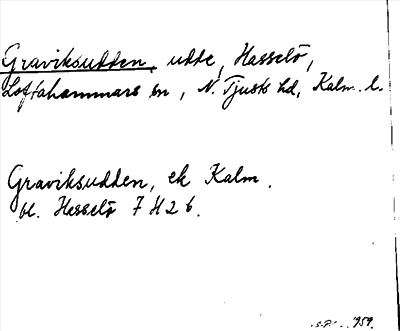 Graviksudden, udde, Hasselö,
Loftahammars sn, N. Tjusts hd, Kalm. l.
Graviksudden, ek Kalm.
bl. Hasselö 7 H 2 b.
1959.